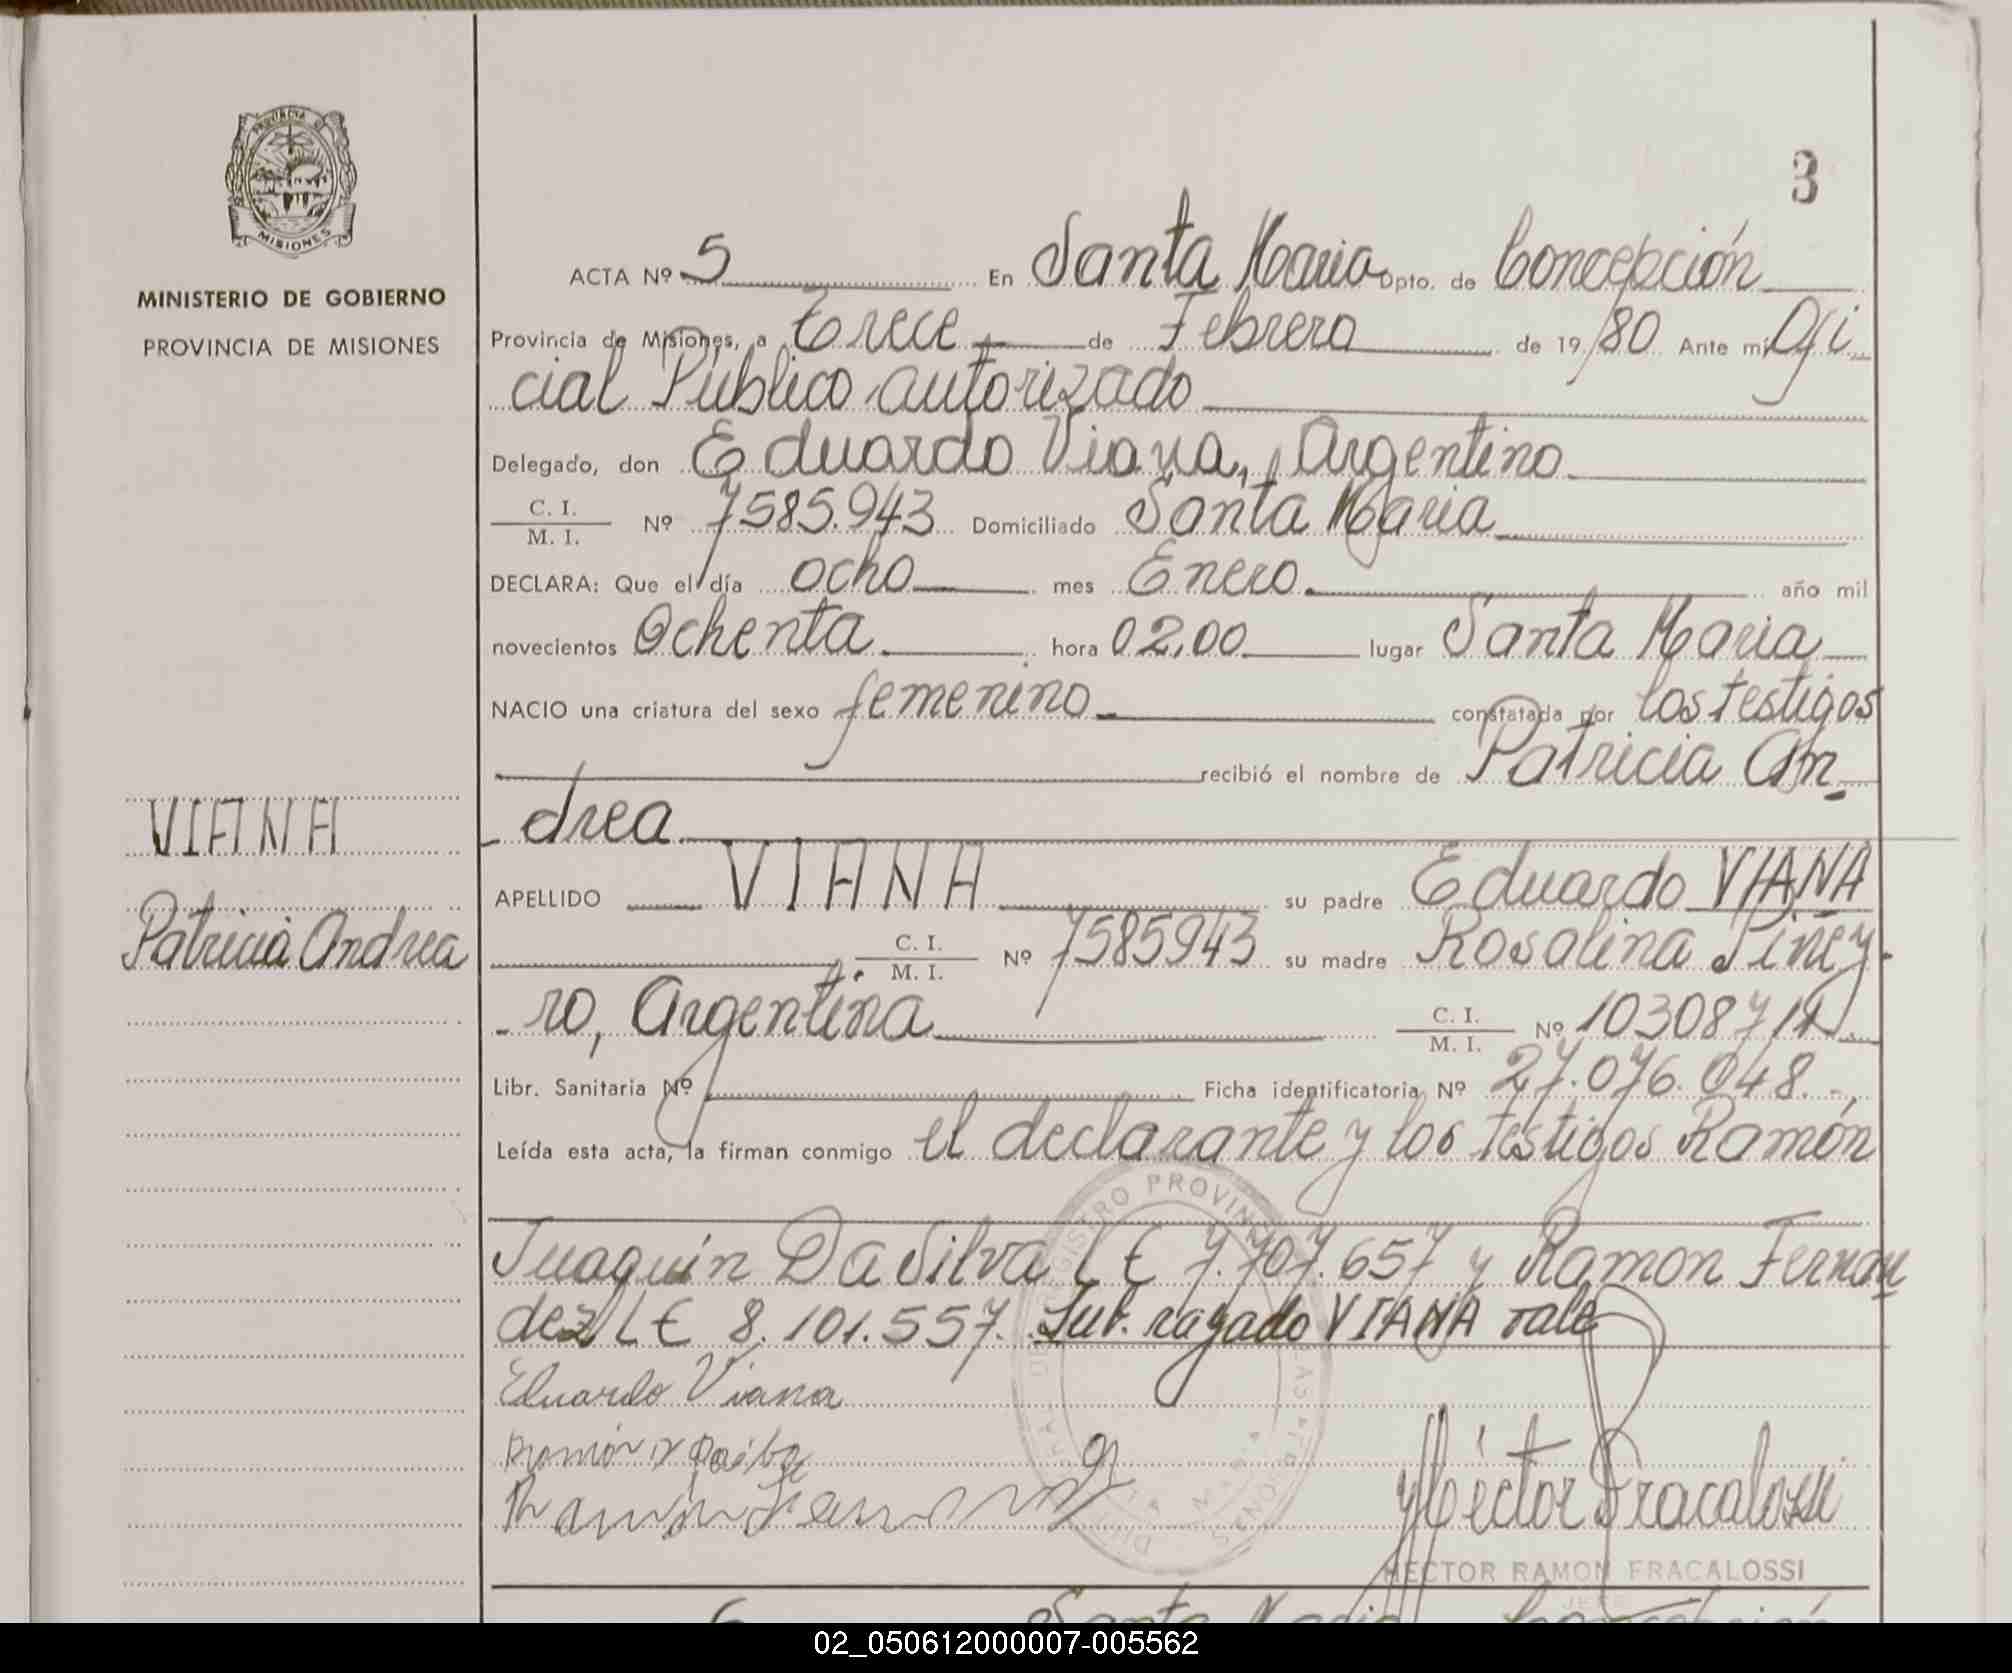 PROVINCIA DE
MISIONES
MINISTERIO DE GOBIERNO
PROVINCIA DE MISIONES
VIANA
Patricia Andrea
3
ACTA Nº 5 En Santa Maria Dpto. de Concepción
Provincia de Misiones, a Trece de Febrero de 19/80 Ante mi Ofi
cial Público autorizado
Delegado, don Eduardo Viana, Argentino
C. I.
M. I. Nº 7585.943 Domiciliado Santa Maria
DECLARA: Que el día ocho mes Enero. año mil
novecientos Ochenta hora 02,00 lugar Santa Maria
NACIO una criatura del sexo femenino constatada por los testigos
recibió el nombre de Patricia An
- drea
APELLIDO VIANA su padre Eduardo VIANA
C. I.
M. I. Nº 7585943 su madre Rosalina Piney-
- ro, Argentina C. I.
M. I. Nº 10308714
Libr. Sanitaria Nº Ficha identificatoria Nº 27.076.048.-
Leída esta acta, la firman conmigo el declarante y los testigos Ramón
Juaquín Da Silva L E 7.707.657 y Ramon Fernan
dez L E 8.101.557. Sub. rayado VIANA vale
Eduardo Viana
Héctor Fracalossi
HECTOR RAMON FRACALOSSI
JEFE
02_050612000007-005562